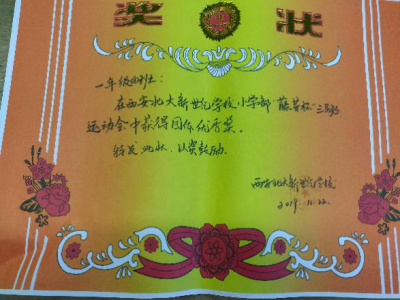 奖状
一年级四班：
在西安北大新世纪学校小学部"藤普杯"三跳
运动会中获得团体优秀奖。
特发此状，以资鼓励。
西安北大新世纪学校
2019.11.22